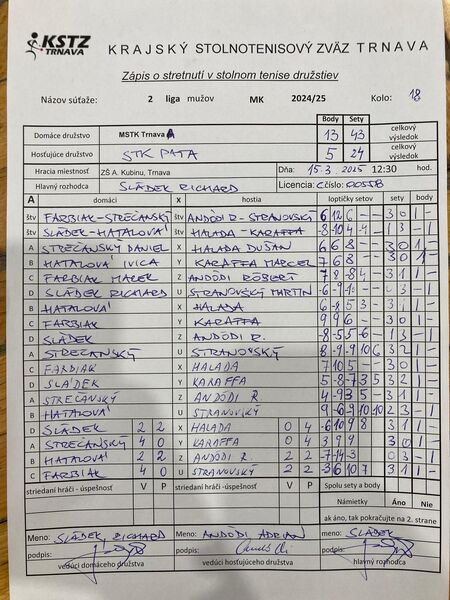 KSTZ
TRNAVA
KRAJSKÝ STOLNOTENISOVÝ ZVÄZ TRNAVA
Zápis o stretnutí v stolnom tenise družstiev
Názov súťaže: 2 liga mužov MK 2024/25 Kolo: 18
Body Sety
Domáce družstvo MSTK Trnava A 13 43 celkový výsledok
Hosťujúce družstvo STK PATA 5 24 celkový výsledok
Hracia miestnosť ZŠ A. Kubinu, Trnava Dňa: 15.3.2025 12:30 hod.
Hlavný rozhodca SLÁDEK RICHARD Licencia: C číslo: 00558
A domáci X hostia loptičky setov sety body
štv FARBIAK-STREČANSKÝ štv ANDÓDI R-STRANOVSKÝ 6 12 6 - - 3 0 1 -
štv SLÁDEK-HATALOVÁ štv HALADA-KARAFFA 1 3 - 1
A STREČANSKÝ DANIEL X HALADA DUŠAN 6 6 8 - - 3 0 1 -
B HATALOVÁ IVICA Y KARAFFA MARCEL 7 6 8 - - 3 0 1 -
C FARBIAK MAREK Z ANDÓDI RÓBERT 3 1 1 -
D SLÁDEK RICHARD U STRANOVSKÝ MARTIN 3 1 1 -
B HATALOVÁ X HALADA 3 1 -
C FARBIAK Y KARAFFA 9 9 6 - - 3 0 1 -
D SLÁDEK Z ANDÓDI R. -8 -5 5 -6 - 1 3 - 1
A STREČANSKÝ U STRANOVSKÝ 8 -9 -9 10 6 3 2 1 -
C FARBIAK X HALADA 7 10 5 - - 3 0 1 -
D SLÁDEK Y KARAFFA 5 -8 -7 3 5 3 2 1 -
A STREČANSKÝ Z ANDÓDI R 3 1 1 -
B HATALOVÁ U STRANOVSKÝ 2 3 - 1
D SLÁDEK 2 2 X HALADA 0 4 -6 10 9 8 3 1 1 -
A STREČANSKÝ 4 0 Y KARAFFA 0 4 3 9 9 3 0 1 -
B HATALOVÁ 2 2 Z ANDÓDI R 2 2 -7 -14 -3 0 3 - 1
C FARBIAK 4 0 U STRANOVSKÝ 2 2 -3 6 10 7 3 1 1 -
striedaní hráči - úspešnosť V P striedaní hráči -úspešnosť V P Spolu sety a body
Námietky Áno Nie
ak áno, tak pokračujte na 2. strane
Meno: SLÁDEK RICHARD Meno: ANDÓDI ADRIAN meno: SLÁDEK
podpis: podpis: podpis:
vedúci domáceho družstva vedúci hosťujúceho družstva hlavný rozhodca